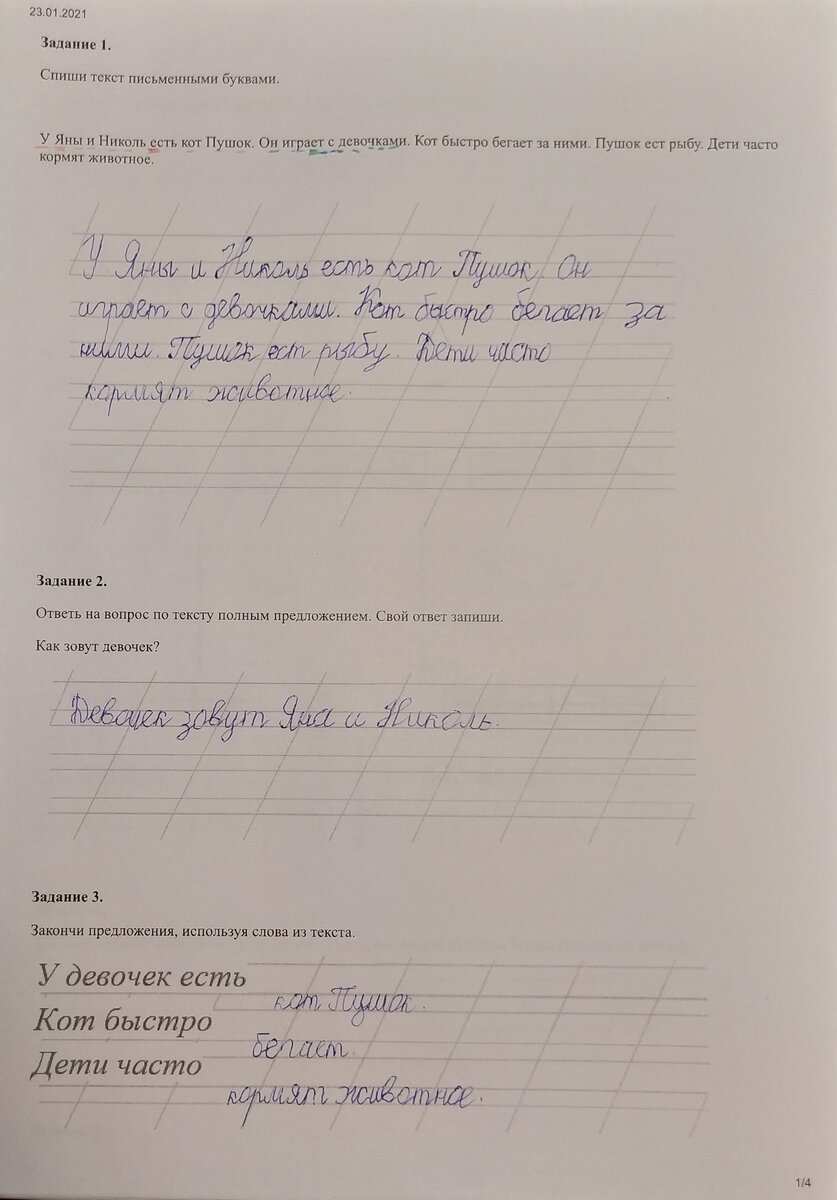 23.01.2021
Задание 1.
Спиши текст письменными буквами.
У Яны и Николь есть кот Пушок. Он играет с девочками. Кот быстро бегает за ними. Пушок ест рыбу. Дети часто
кормят животное.
У Яны и Николь есть кот Пушок. Он
играет с девочками. Кот быстро бегает за
ними. Пушок ест рыбу. Дети часто
кормят животное.
Задание 2.
Ответь на вопрос по тексту полным предложением. Свой ответ запиши.
Как зовут девочек?
Девочек зовут Яна и Николь.
Задание 3.
Закончи предложения, используя слова из текста.
У девочек есть кот Пушок.
Кот быстро бегает.
Дети часто кормят животное.
1/4